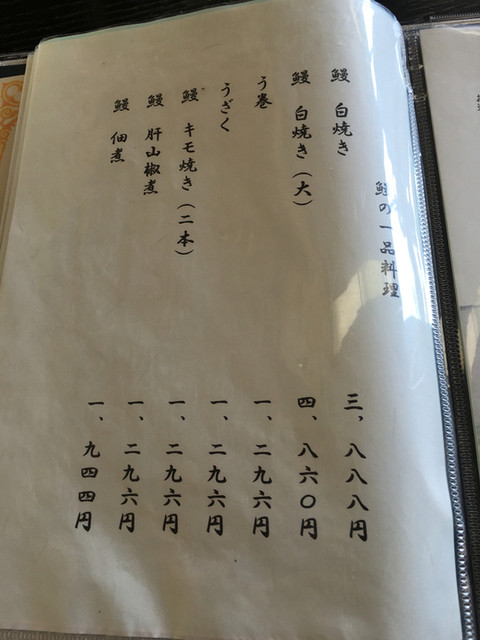 鰻の一品料理
鰻 白焼き 三、八八八円
鰻 白焼き(大) 四、八六〇円
う巻 一、二九六円
うざく 一、二九六円
鰻 キモ焼き(二本) 一、二九六円
鰻 肝山椒煮 一、二九六円
鰻 佃煮 一、九四四円